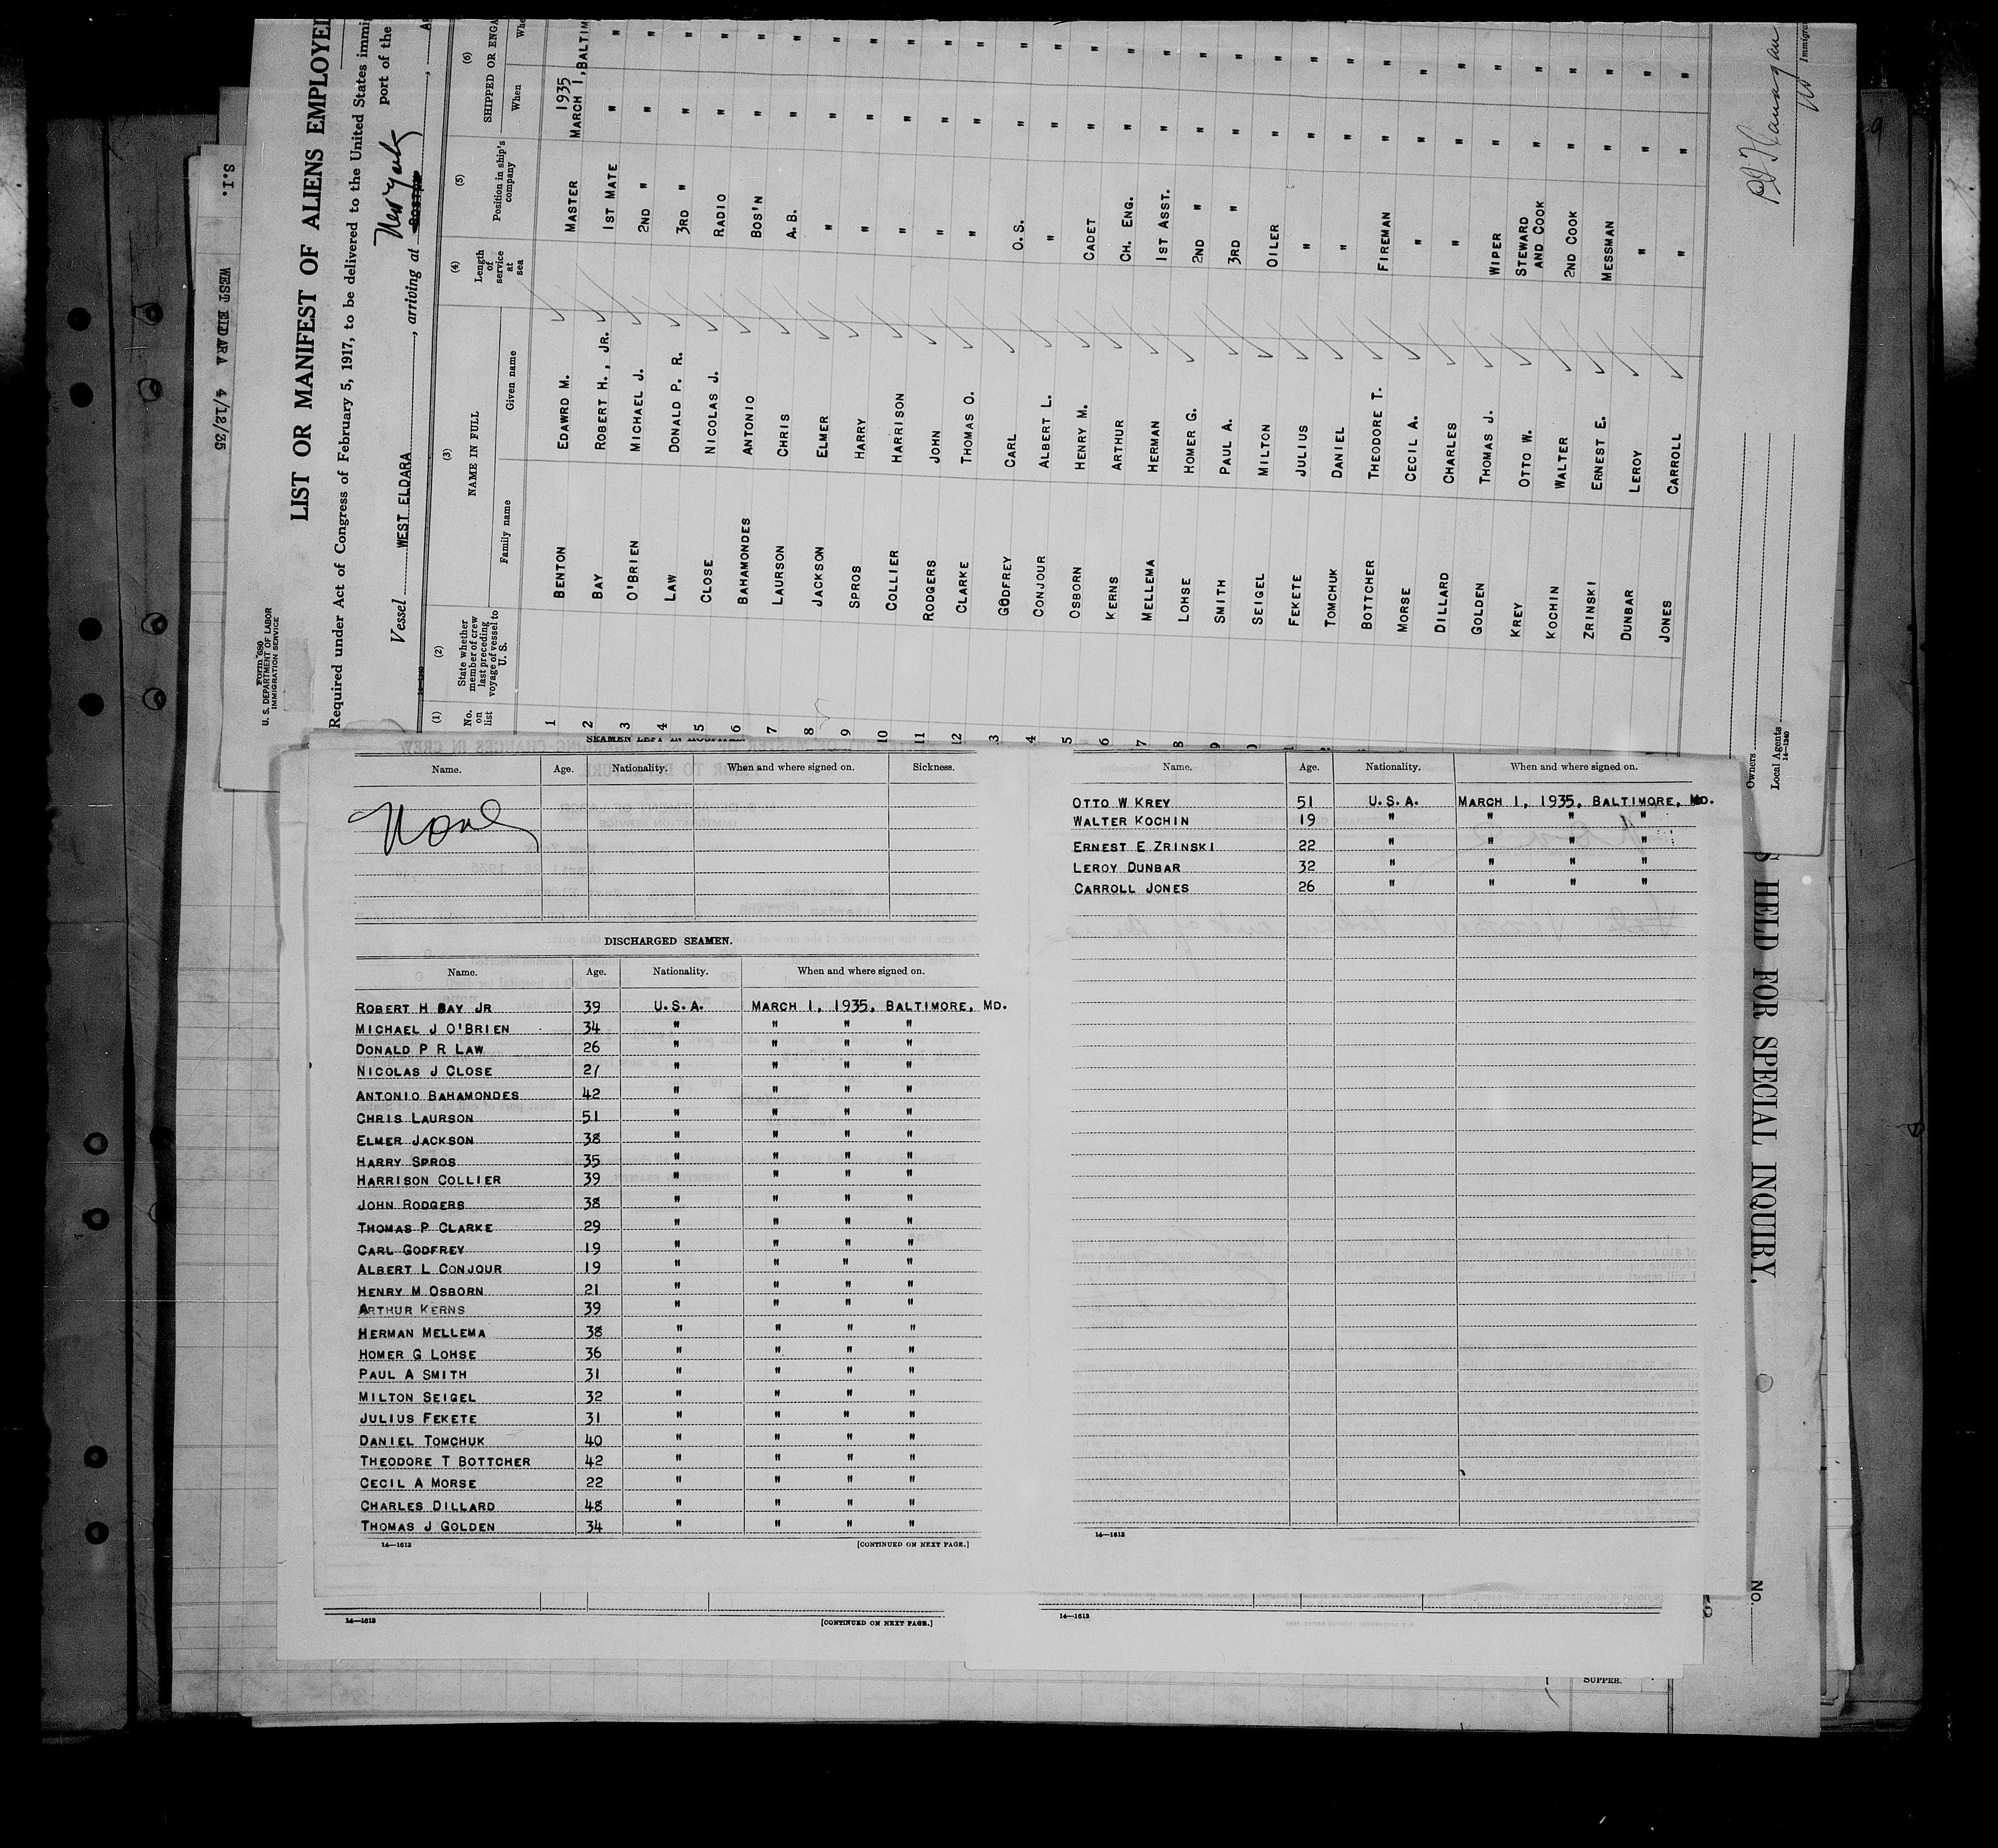 S.I.
WEST ELDARA 4/12/35
Form 680
U. S. DEPARTMENT OF LABOR
IMMIGRATION SERVICE
LIST OR MANIFEST OF ALIENS EMPLOYED
Required under Act of Congress of February 5, 1917, to be delivered to the United States immi
Vessel WEST ELDARA, arriving at BOSTON New York port of the
(1) (2) (3) (4) (5) (6)
No. on list
State whether member of crew last preceding voyage of vessel to U. S.
NAME IN FULL
Family name Given name
Length of service at sea
Position in ship's company
SHIPPED OR ENGA
When Whe
1 BENTON EDAWRD M. MASTER 1935 MARCH 1, BALTIM
2 BAY ROBERT H., JR. 1ST MATE " "
3 O'BRIEN MICHAEL J. 2ND " " "
4 LAW DONALD P. R. 3RD " " "
5 CLOSE NICOLAS J. RADIO " "
6 BAHAMONDES ANTONIO BOS'N " "
7 LAURSON CHRIS A.B. " "
8 JACKSON ELMER " " "
9 SPROS HARRY " " "
10 COLLIER HARRISON " " "
11 RODGERS JOHN " " "
12 CLARKE THOMAS O. " " "
3 GODFREY CARL O.S. " "
4 CONJOUR ALBERT L. " " "
5 OSBORN HENRY M. CADET " "
6 KERNS ARTHUR CH. ENG. " "
7 MELLEMA HERMAN 1ST ASST. " "
8 LOHSE HOMER G. 2ND " " "
9 SMITH PAUL A. 3RD " " "
SEIGEL MILTON OILER " "
FEKETE JULIUS " " "
TOMCHUK DANIEL " " "
BOTTCHER THEODORE T. FIREMAN " "
MORSE CECIL A. " " "
DILLARD CHARLES " " "
GOLDEN THOMAS J. WIPER " "
KREY OTTO W. STEWARD AND COOK " "
KOCHIN WALTER 2ND COOK " "
ZRINSKI ERNEST E. MESSMAN " "
DUNBAR LEROY " " "
JONES CARROLL " " "
Owners
Local Agents
14—1240
Immigra
SEAMEN LEFT IN HOSPITAL.
Name. Age. Nationality. When and where signed on. Sickness.
None
DISCHARGED SEAMEN.
Name. Age. Nationality. When and where signed on.
ROBERT H BAY JR 39 U.S.A. MARCH 1, 1935, BALTIMORE, MD.
MICHAEL J O'BRIEN 34 " " " "
DONALD P R LAW 26 " " " "
NICOLAS J CLOSE 27 " " " "
ANTONIO BAHAMONDES 42 " " " "
CHRIS LAURSON 51 " " " "
ELMER JACKSON 38 " " " "
HARRY SPROS 35 " " " "
HARRISON COLLIER 39 " " " "
JOHN RODGERS 38 " " " "
THOMAS P CLARKE 29 " " " "
CARL GODFREY 19 " " " "
ALBERT L CONJOUR 19 " " " "
HENRY M OSBORN 21 " " " "
ARTHUR KERNS 39 " " " "
HERMAN MELLEMA 38 " " " "
HOMER G LOHSE 36 " " " "
PAUL A SMITH 31 " " " "
MILTON SEIGEL 32 " " " "
JULIUS FEKETE 31 " " " "
DANIEL TOMCHUK 40 " " " "
THEODORE T BOTTCHER 42 " " " "
CECIL A MORSE 22 " " " "
CHARLES DILLARD 48 " " " "
THOMAS J GOLDEN 34 " " " "
14—1613 [CONTINUED ON NEXT PAGE.]
14—1613 [CONTINUED ON NEXT PAGE.]
Name. Age. Nationality. When and where signed on.
OTTO W KREY 51 U.S.A. MARCH 1, 1935, BALTIMORE, MD.
WALTER KOCHIN 19 " " " "
ERNEST E ZRINSKI 22 " " " "
LEROY DUNBAR 32 " " " "
CARROLL JONES 26 " " " "
14—1613
14—1613
HELD FOR SPECIAL INQUIRY.
NO.
SUPPER.